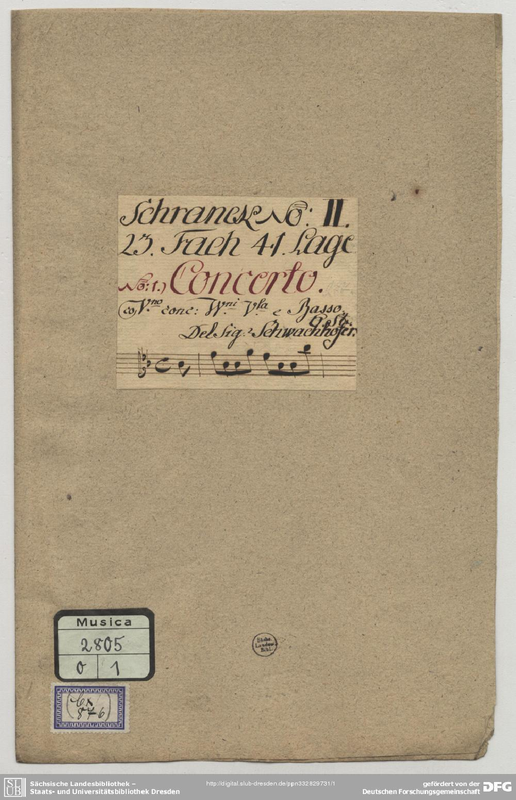 Schranck No: II.
23. Fach 41. Lage
No: 1.) Concerto.
co Vno conc: Wni Vla e Basso
Del Sig.r Schwachhofer.
Musica
2805
O 1
(Cx
876)
Sächs.
Landes-
Bibl.
Sächsische Landesbibliothek –
Staats- und Universitätsbibliothek Dresden
http://digital.slub-dresden.de/ppn332829731/1
gefördert von der
Deutschen Forschungsgemeinschaft
DFG